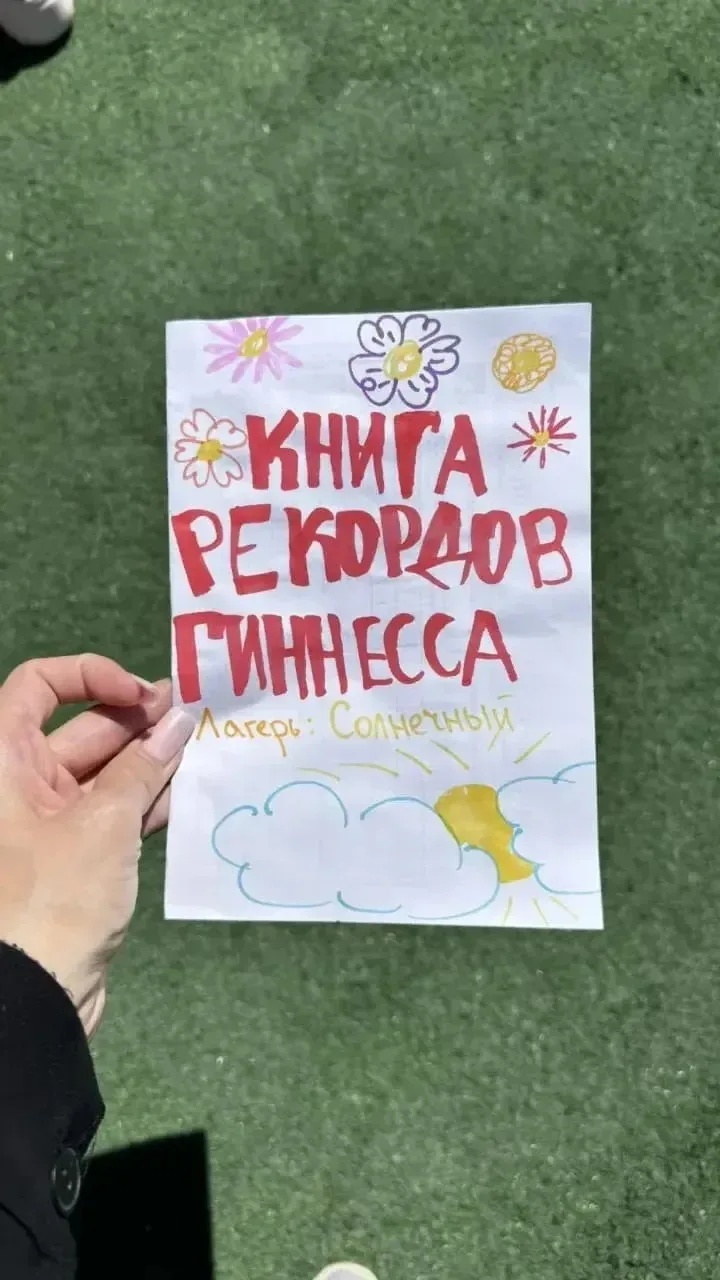 КНИГА
РЕКОРДОВ
ГИННЕССА
Лагерь: Солнечный